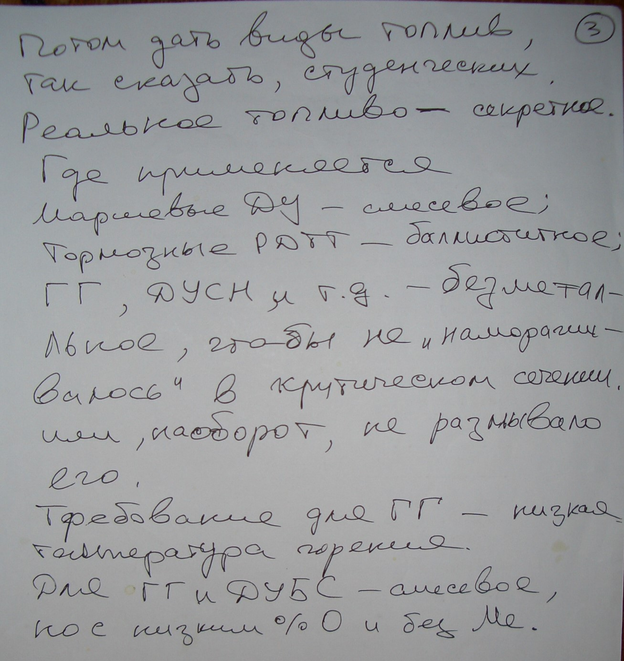 Потом дать виды топлив, 3
так сказать, студенческих.
Реальное топливо – секретное.
Где применяется
Маршевые ДУ – смесевое;
Тормозные РДТТ – баллиститное;
ГГ, ДУСН и т.д. – безметал-
льное, чтобы не "наморажи-
валось" в критическом сечении.
или, наоборот, не размывало
его.
Требование для ГГ – низкая
температура горения.
Для ГГ и ДУБС – смесевое,
но с низким % О и без Ме.